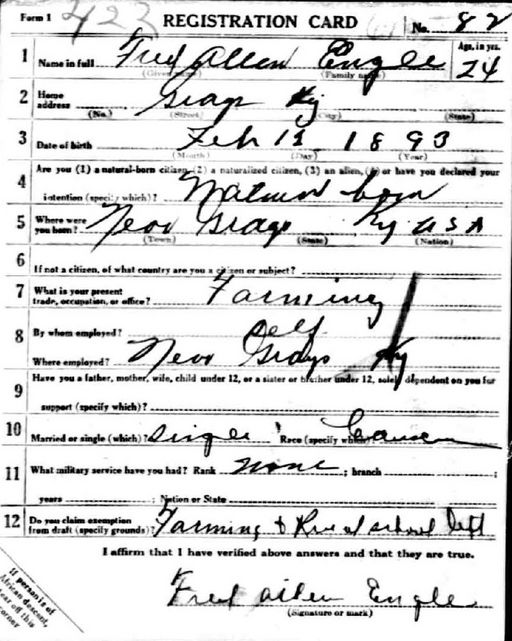 Form 1 423 REGISTRATION CARD No. 82
1 Name in full Fred Allen Engle Age, in yrs. 24
(Given name) (Family name)
2 Home address Grays Ky
(No.) (Street) (City) (State)
3 Date of birth Feb 13 1893
(Month) (Day) (Year)
4 Are you (1) a natural-born citizen, (2) a naturalized citizen, (3) an alien, (4) or have you declared your
intention (specify which)? Natural born
5 Where were you born? Near Grays Ky USA
(Town) (State) (Nation)
6 If not a citizen, of what country are you a citizen or subject?
7 What is your present trade, occupation, or office? Farming
8 By whom employed? Self
Where employed? Near Grays Ky
9 Have you a father, mother, wife, child under 12, or a sister or brother under 12, solely dependent on you for
support (specify which)?
10 Married or single (which)? single Race (specify which)?
11 What military service have you had? Rank none ; branch ;
years ; Nation or State
12 Do you claim exemption from draft (specify grounds)? Farming + school left
I affirm that I have verified above answers and that they are true.
Fred Allen Engle
(Signature or mark)
If person is of
African descent,
tear off this
corner